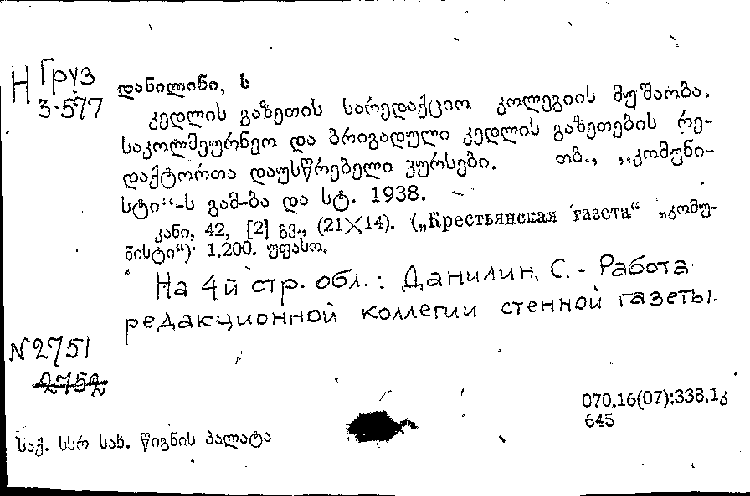 Н Груз
3-577
დანილინი, ს
კედლის გაზეთის სარედაქციო კოლეგიის მუშაობა.
საკოლმეურნეო და ბრიგადული კედლის გაზეთების რე-
დაქტორთა დაუსწრებელი კურსები. თბ., „კომუნი-
სტი“-ს გამ-ბა და სტ. 1938.
კანი, 42, [2] გვ., (21X14). („Крестьянская газета“ „კომუ-
ნისტი“) 1,200. უფასო.
На 4й стр. обл.: Данилин, С. - Работа
редакционной коллегии стенной газеты.
N2751
2752
070.16(07):338.1კ
645
საქ. სსრ სახ. წიგნის პალატა